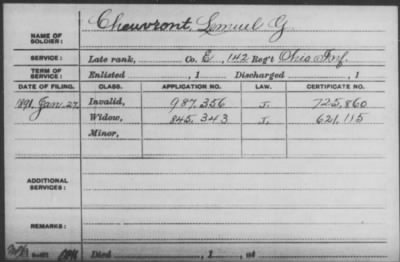 Cheuvront, Lemuel G.
NAME OF SOLDIER:
SERVICE: Late rank, Co. E, 142 Reg't Ohio Inf.
TERM OF SERVICE: Enlisted , 1 Discharged , 1
DATE OF FILING. CLASS. APPLICATION NO. LAW. CERTIFICATE NO.
1891, Jan. 27. Invalid, 987.356 J. 725.860
Widow, 845.343 J. 621.115
Minor,
ADDITIONAL SERVICES:
REMARKS:
Died , 1 , at